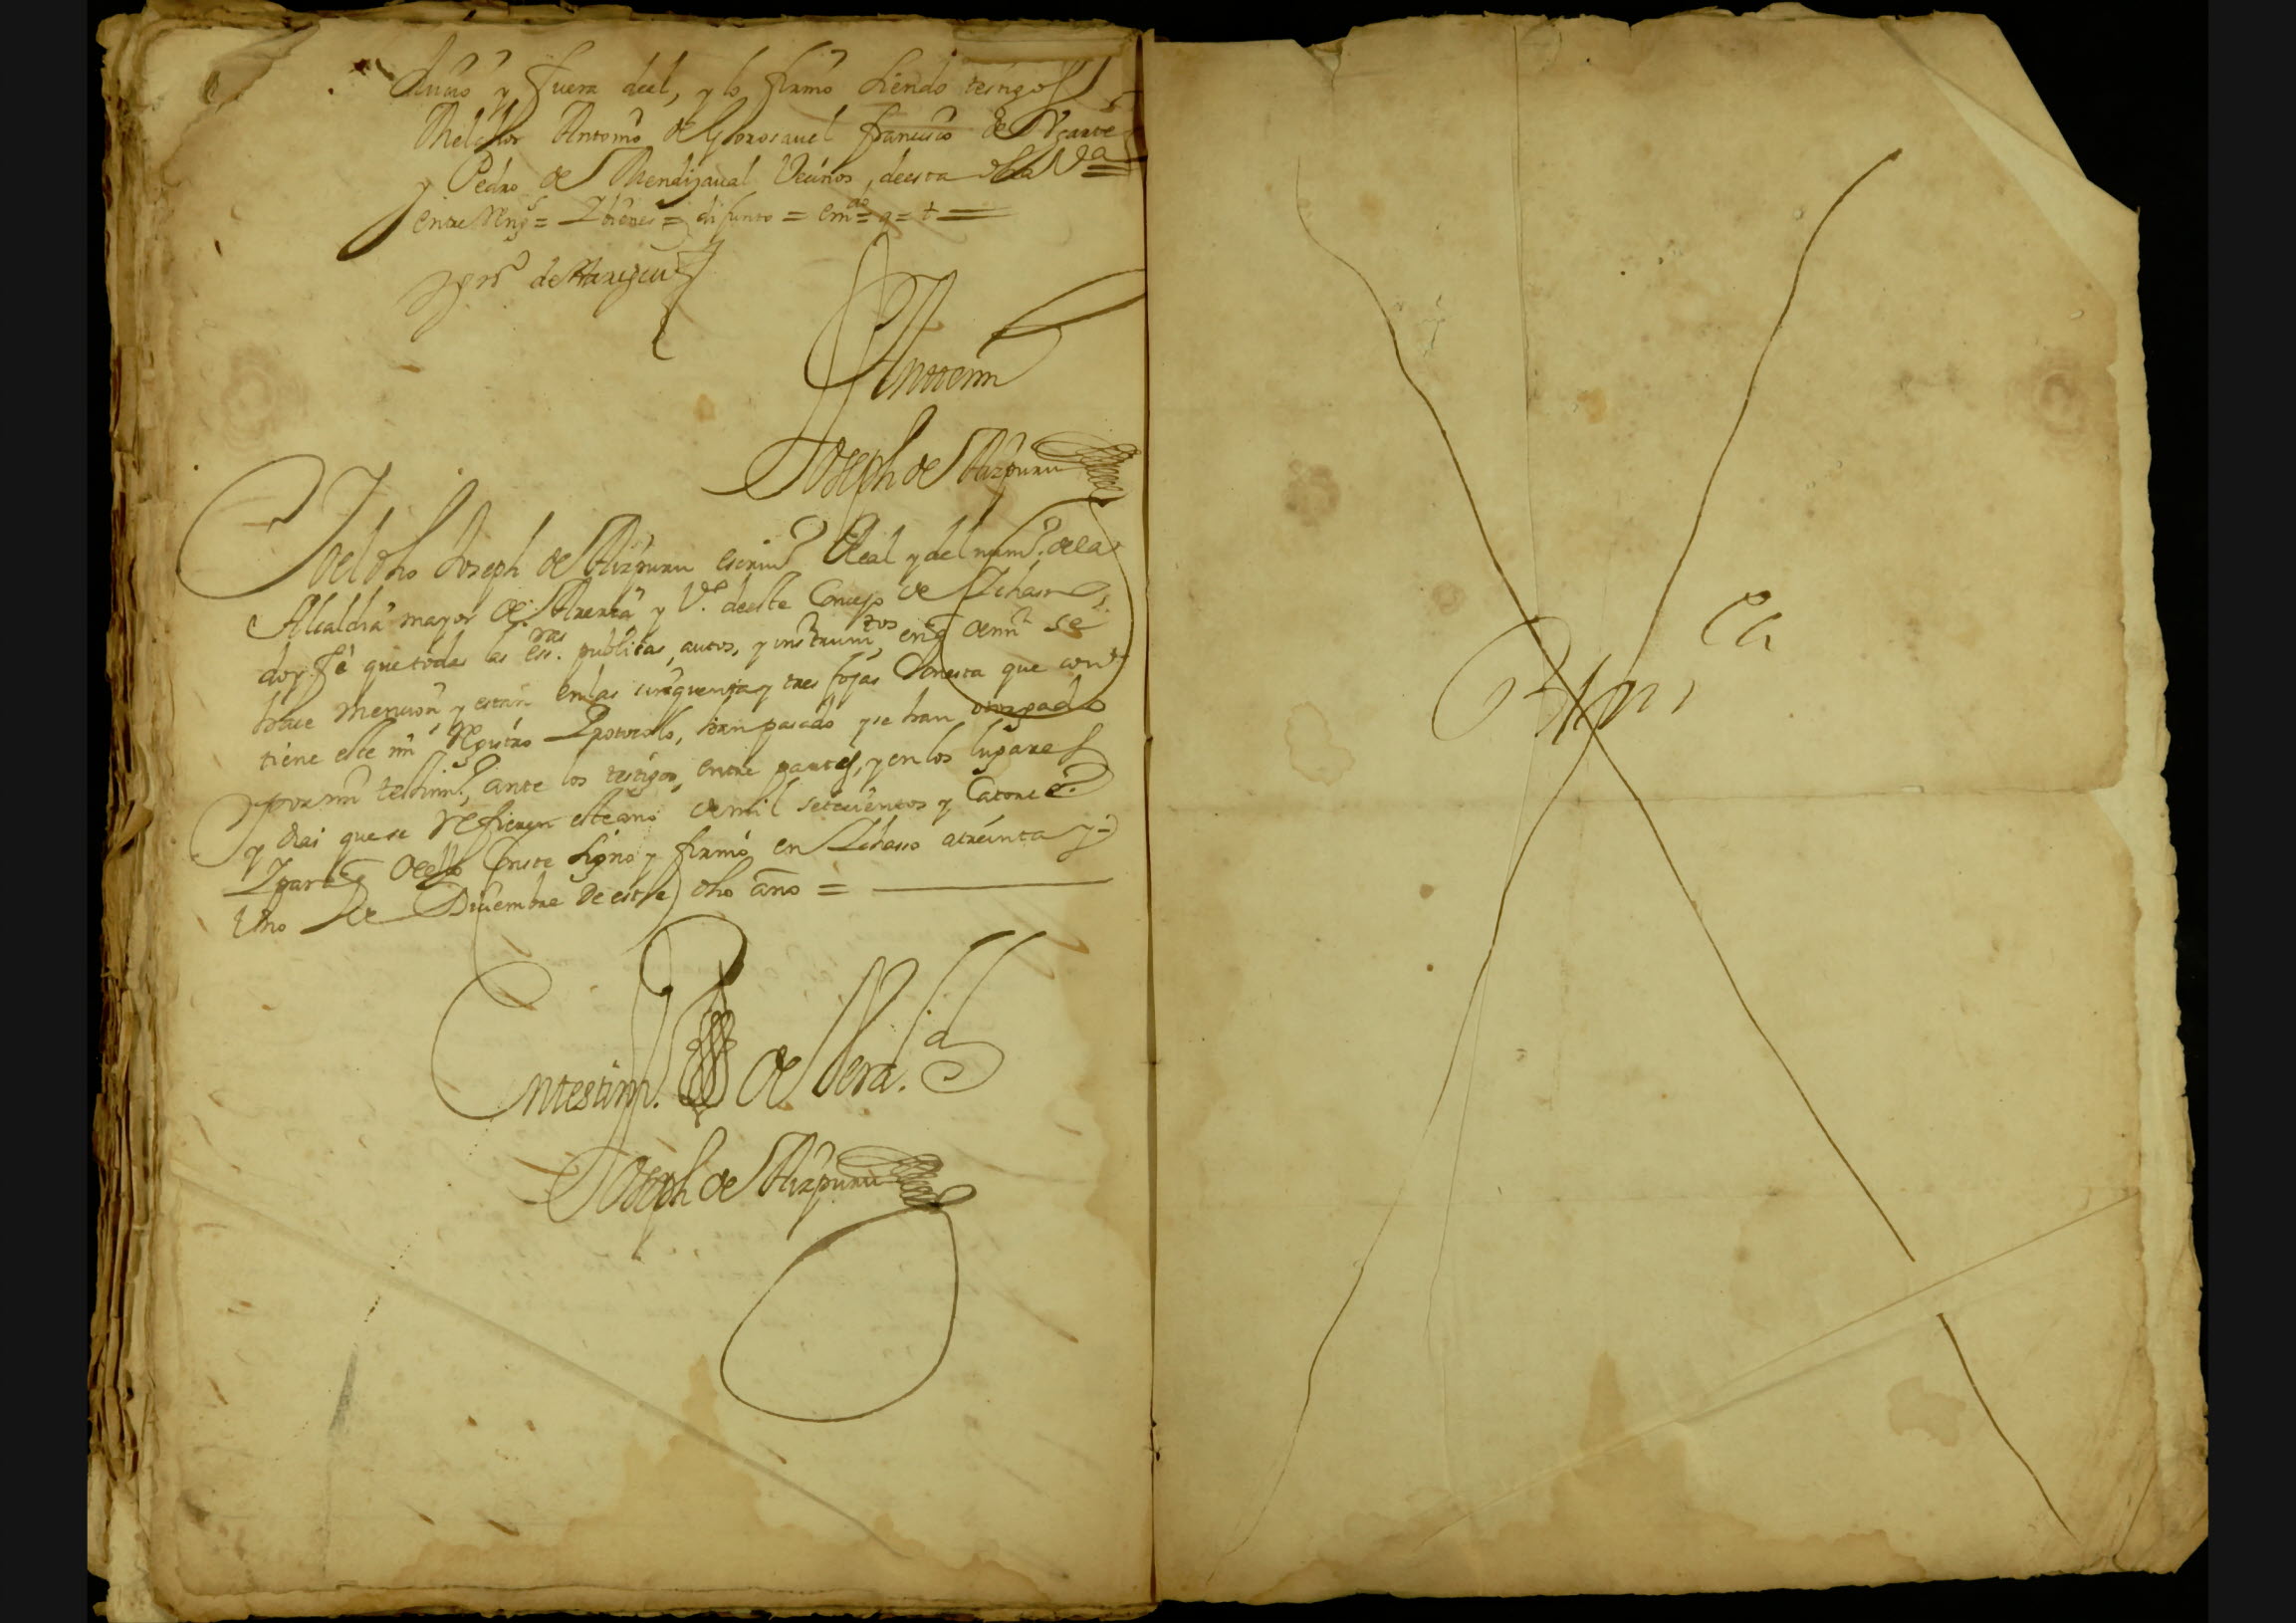 Juiçio y fuera deel, y lo firmo siendo testigos
Melchor Antonio de Gorosauel francisco de Vgarte
y Pedro de Mendizaual Veçinos, deesta dha Va
entre Reng.s = difunto = em.do = q = t =
de Aranguren
Ante mi
Joseph de Aizpuru
Yo el dho Joseph de Aizpuru escriu.o Real y del num.o dela
Alcaldia mayor de Areria y V.o deeste Conçejo de Ichaso,
doy fe que todas las ess.ras publicas, autos, y instrum.tos en q demi se
haçe mençion y estan enlas çinquenta y tres fojas conesta que con
tiene este mi Registro Protocolo, han pasado y se han otorgado
por mi testim.o, ante los testigos, entre partes, y en los lugares
y dias que se Refieren esteano de mil seteçientos y Catorce.
Y para q dello Conste signo y firmo en Ichaso atreinta y
Uno de Diçiembre de este dho año =
En testim.o de Verd.ad
Joseph de Aizpuru